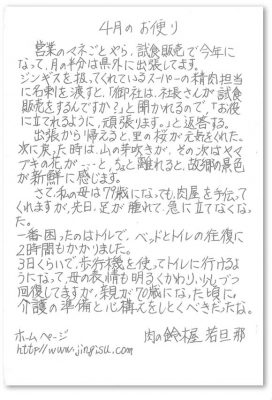 4月のお便り
営業のマネごとやら、試食販売で今年に
なって、月の半分は県外に出張してます。
ジンギスを扱ってくれているスーパーの精肉担当
に名刺を渡すと、「御社は、社長さんが試食
販売をするんですか?」と聞かれるので、「お役
に立てれるように、頑張ります。」と返答する。
出張から帰えると、里の桜が元気をくれた。
次に戻った時は、山の芽吹きが、その次はヤマ
ブキの花が…と、ちょっと離れると、故郷の景色
が新鮮に感じます。
さて、私の母は77歳になっても肉屋を手伝って
くれますが、先日、足が腫れて、急に立てなくなっ
た。
一番困ったのはトイレで、ベッドとトイレの往復に
2時間もかかりました。
3日くらいで、歩行機を使ってトイレに行けるよ
うになって、母の表情も明るくかわり、少しづつ
回復してますが、親が70歳になった頃に
介護の準備と心構えをしとくべきだったな。
ホームページ 肉の鈴木屋 若旦那
http://www.jingisu.com